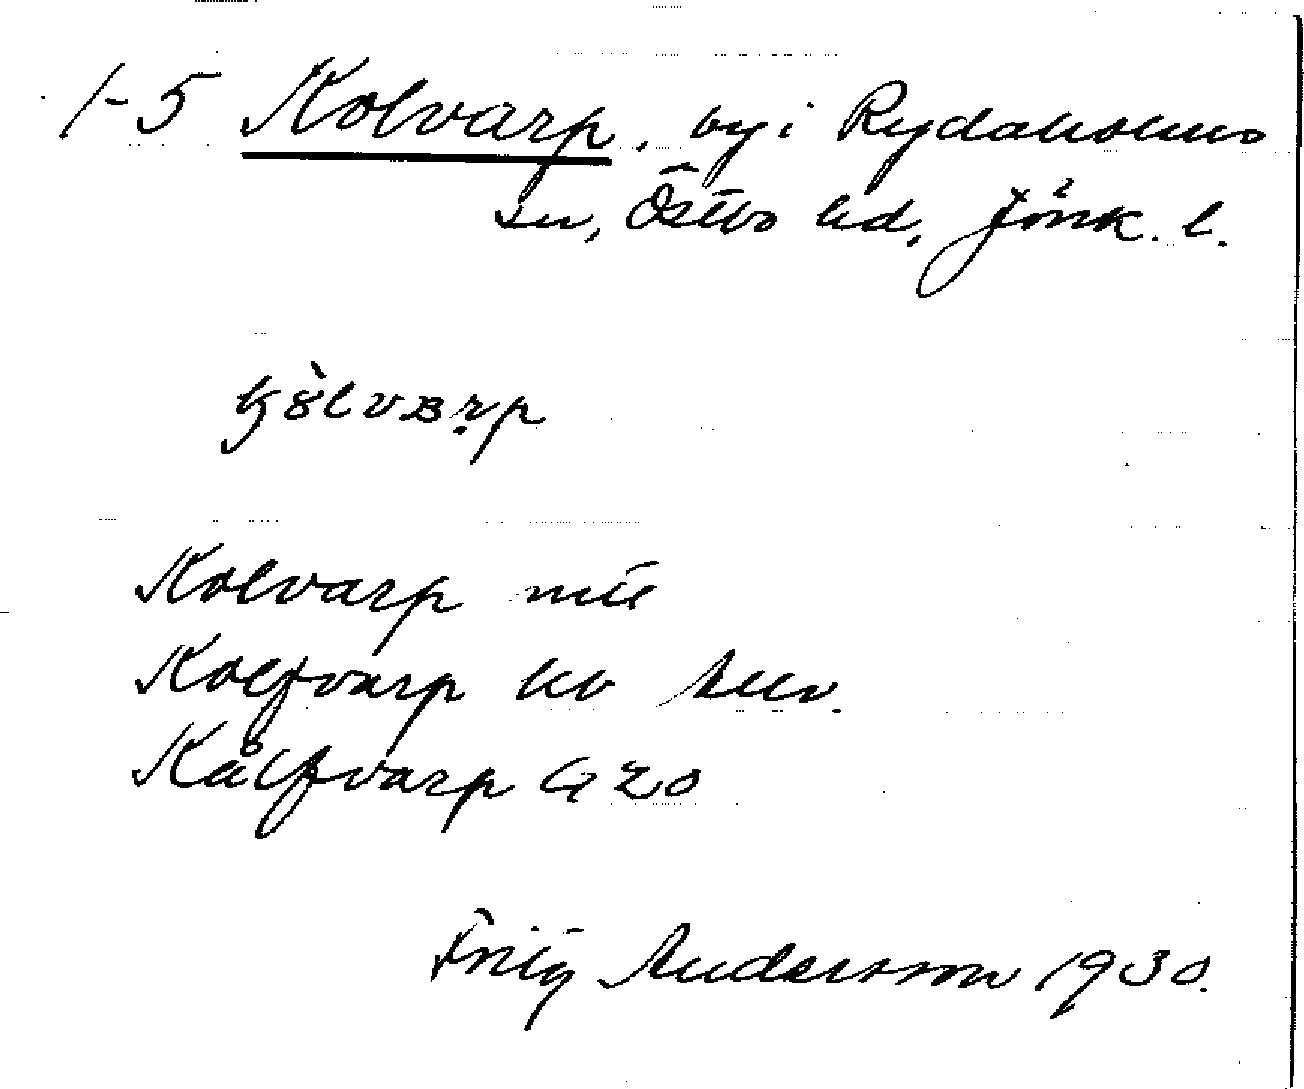 1-5 Kolvarp, by i Rydaholms
sn, Östbo hd, Jönk. l.
Kolvarp mtl
Kolfvarp hb Allm.
Kålfvarp G 20
Fritz Andersson 1930.